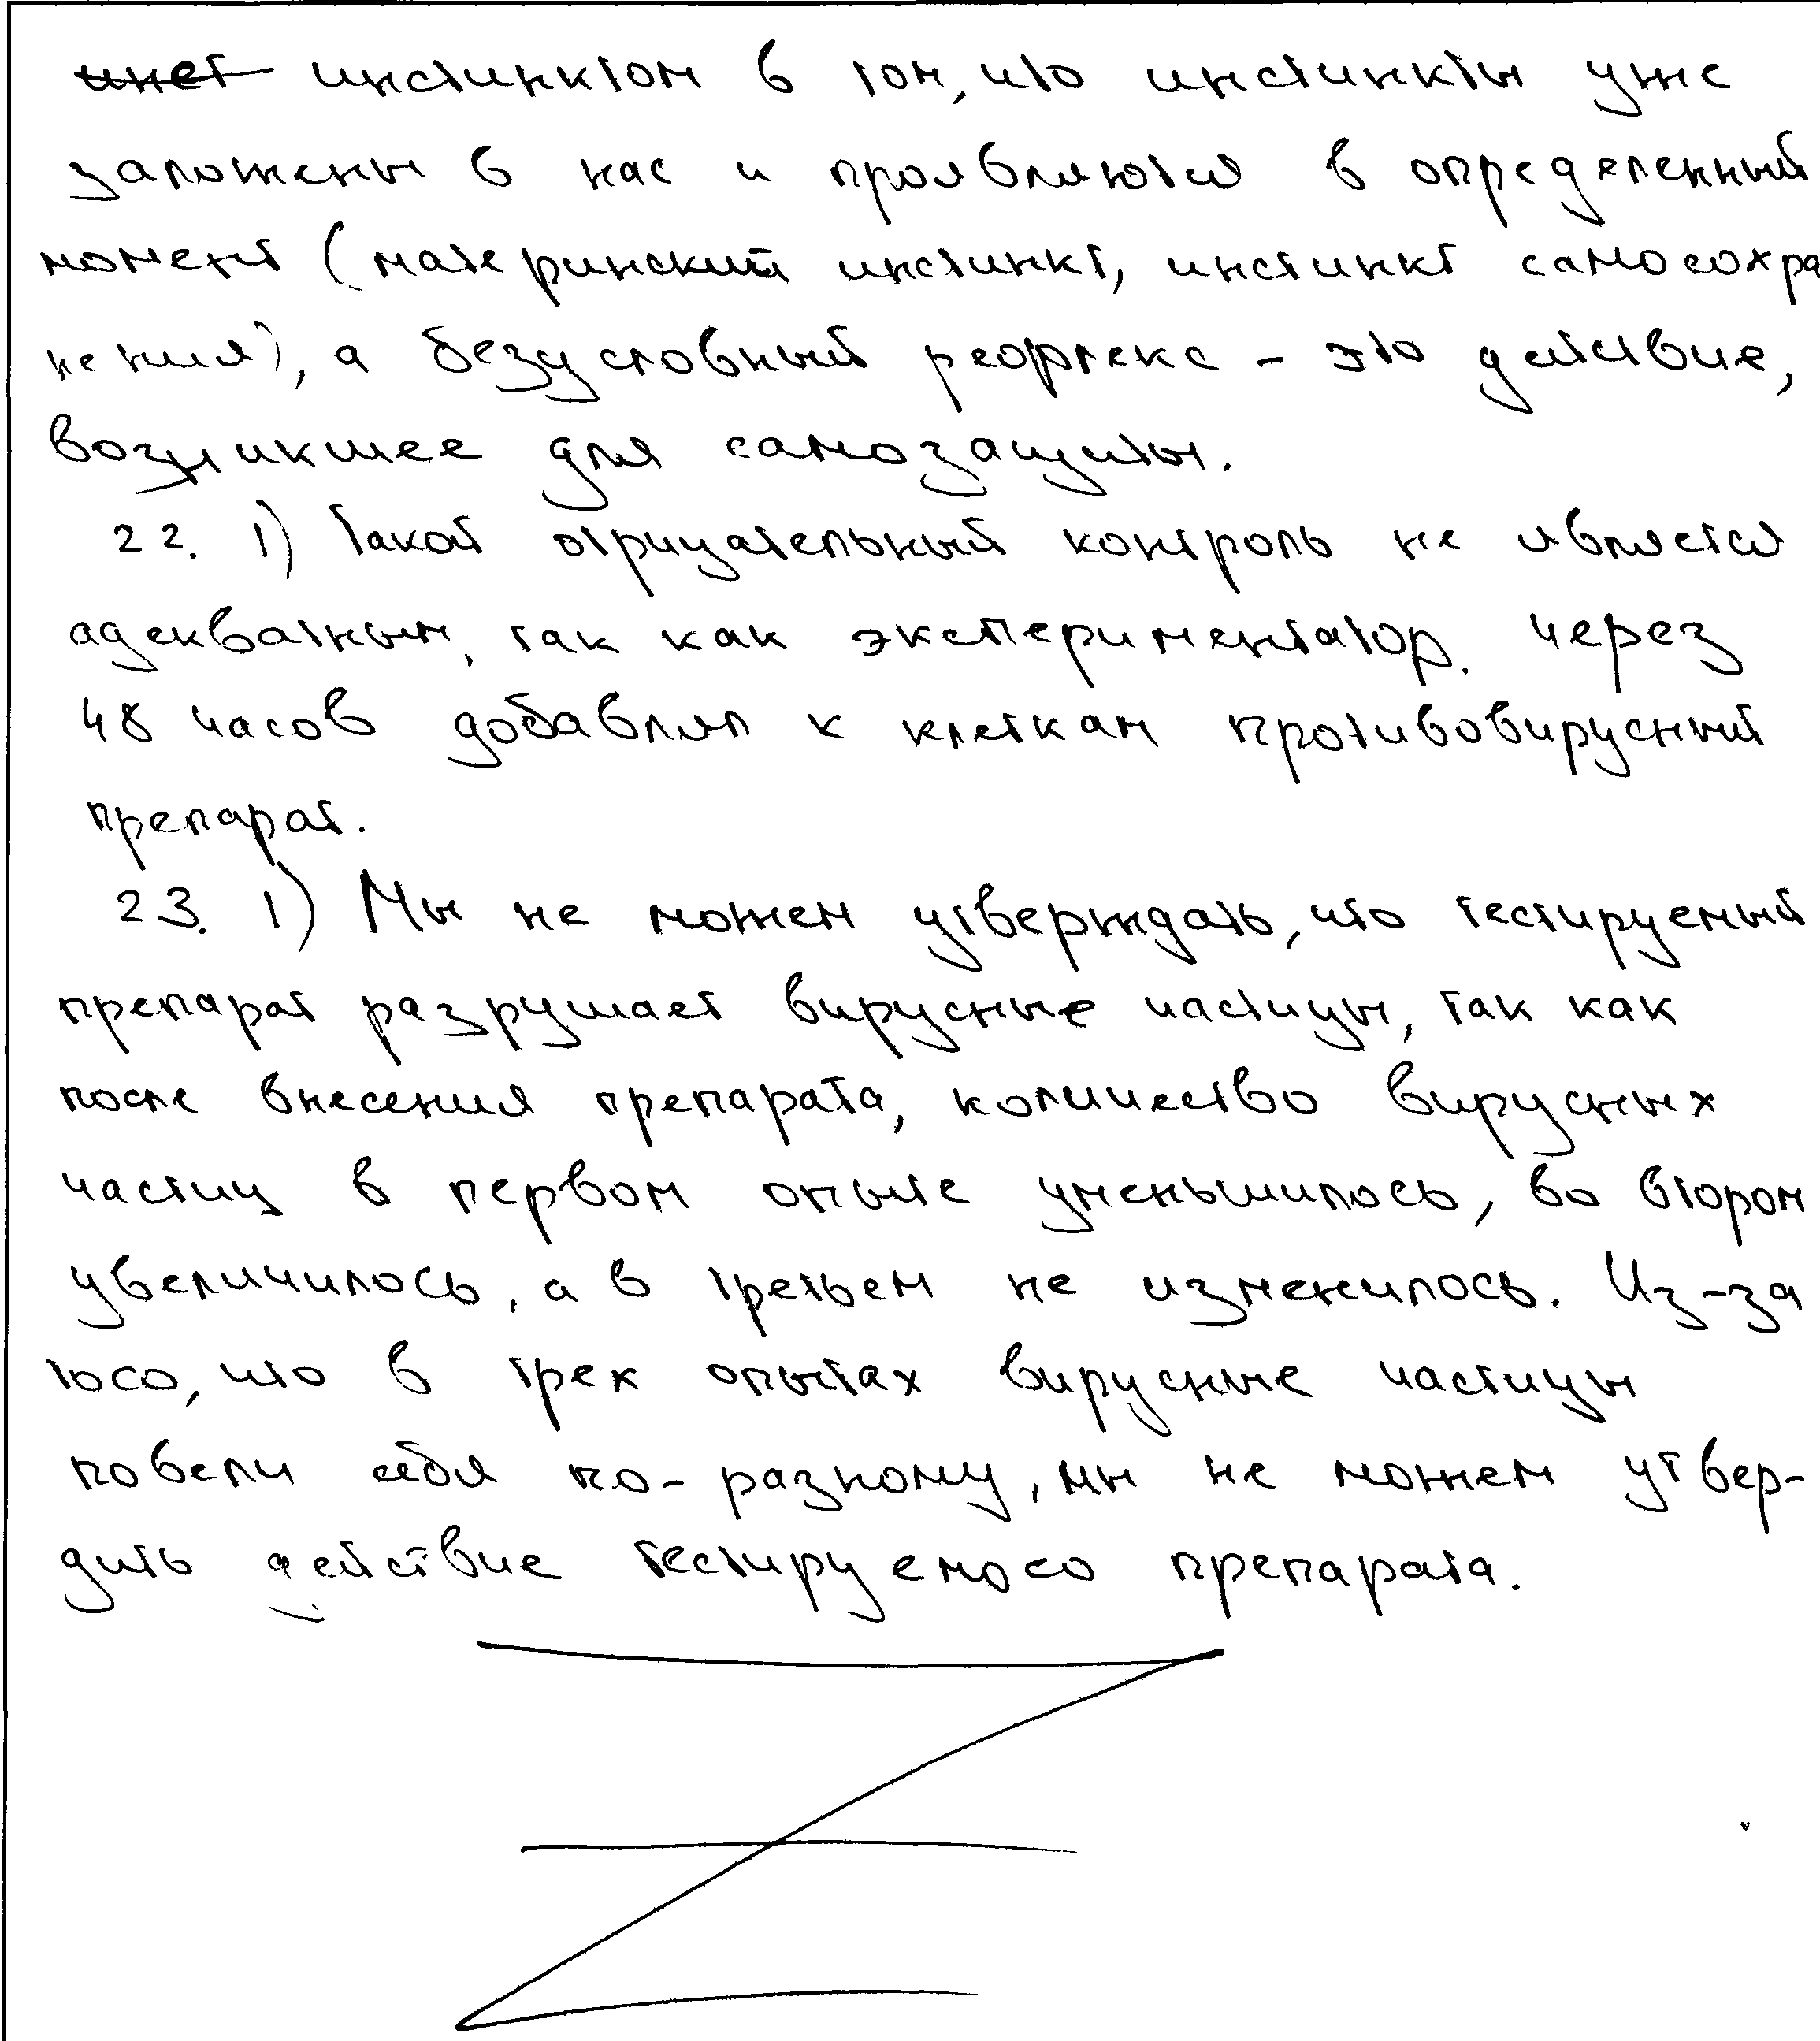 инст инстинктом в том, что инстинкты уже
заложены в нас и проявляются в определенный
момент (материнский инстинкт, инстинкт самосохра
нения), а безусловный рефлекс - это действие,
возникшее для самозащиты.
22. 1) Такой отрицательный контроль не является
адекватным, так как экспериментатор. через
48 часов добавлял к клеткам противовирусный
препарат.
23. 1) Мы не можем утверждать, что тестируемый
препарат разрушает вирусные частицы, так как
после внесения препарата, количество вирусных
частиц в первом опыте уменьшилось, во втором
увеличилось, а в третьем не изменилось. Из-за
того, что в трех опытах вирусные частицы
повели себя по-разному, мы не можем утвер-
дить действие тестируемого препарата.